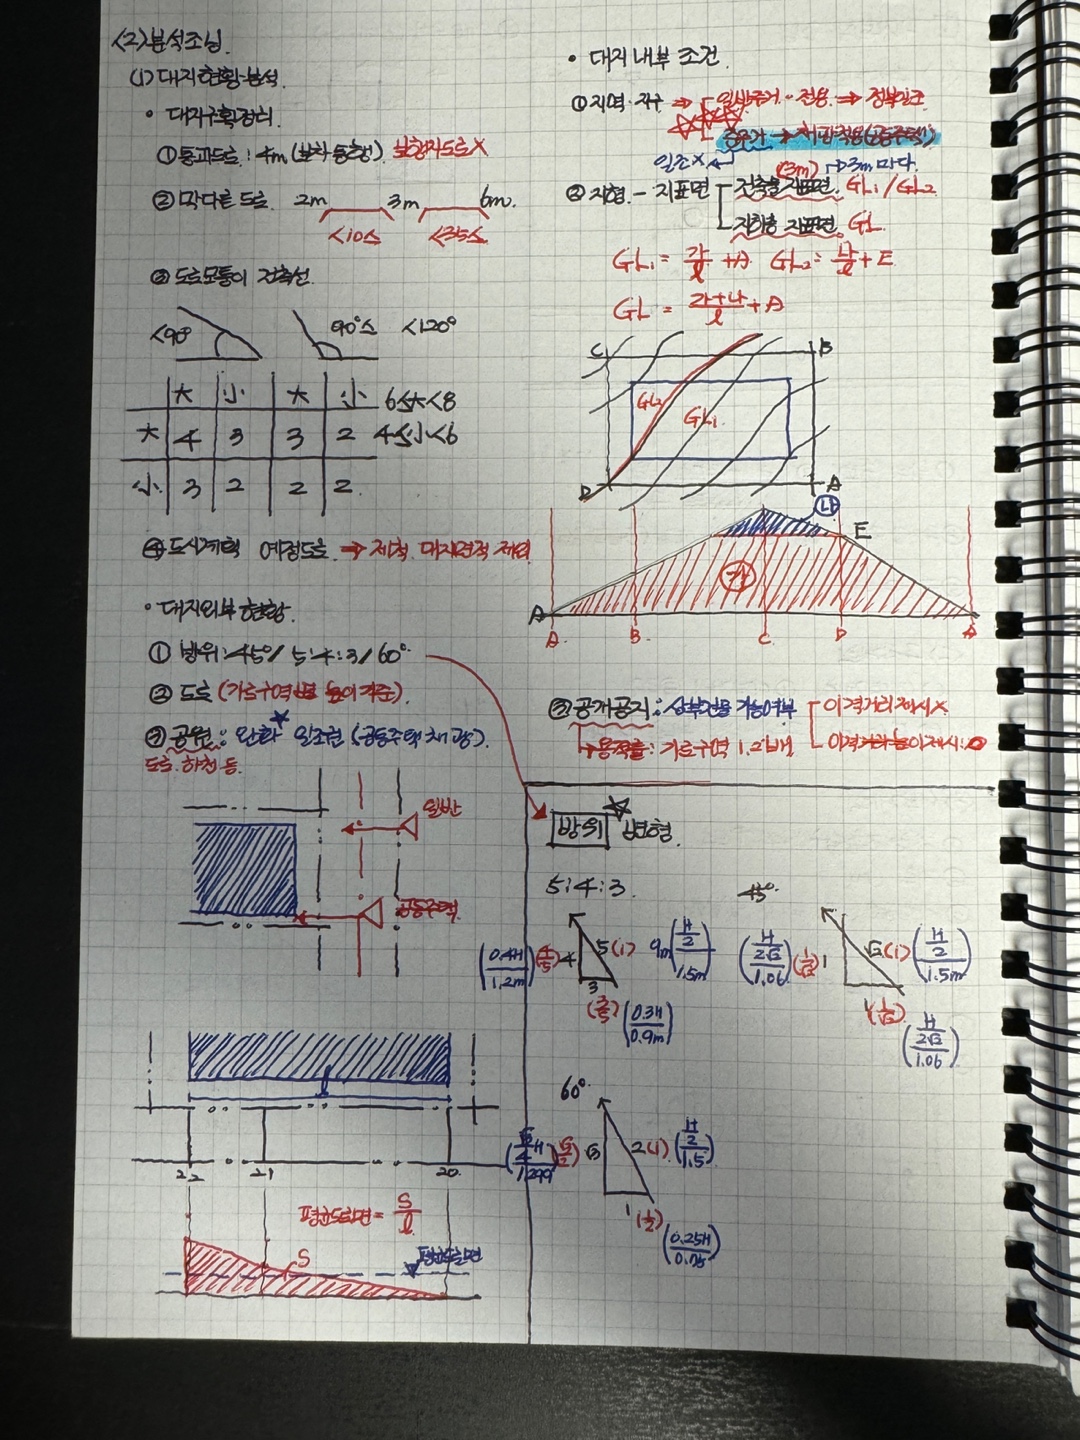 <2>분석조닝.
(1) 대지현황분석.
• 대지구획정리
① 통과도로 : 4m (보차동행). 보행자도로X
② 막다른 도로. 2m 3m 6m.
<10≤ <35≤
③ 도로모퉁이 건축선
<90° 90°≤ <120°
大 小 大 小 6≤大<8
大 4 3 3 2 4≤小<6
小 3 2 2 2
④ 도시계획 예정도로 ⇒ 제척. 대지면적 제외
• 대지외부 현황.
① 방위: 45°/ 5:4:3/ 60°
② 도로 (가로구역별 높이 기준).
③ 공원 : 완화 일조권 (공동주택 채광).
도로. 하천 등.
일반
공동주택
ℓ
22 21 20
평균도로면 = S/ℓ
S
평균도로면
• 대지 내부 조건
① 지역·지구 ⇒ 일반주거·전용 ⇒ 정북일조
준주거 → 채광적용(공동주택)
일조X (3m) →3m 마다.
② 지형 - 지표면 건축물 지표면. GL₁/GL₂
지하층 지표면. GL
GL₁ = 가/ℓ + A GL₂ = 나/ℓ + E
GL = 가+나/ℓ + A
C B
GL₂ GL₁
D A
나
E
가
A
A. B. C D A
③ 공개공지 : 상부건물 가능여부 이격거리제시X
→용적률 : 가로구역 1.2배 이격거리높이제시: O
방위 변형
5:4:3 45°
(0.4H/1.2m) (4/5) 4 5(1) 9m (H/2/1.5m)
3
(3/5) (0.3H/0.9m)
(H/2√2/1.06) (1/√2) 1 √2(1) (H/2/1.5m)
1(1/√2)
(H/2√2/1.06)
60°
(√3/4H/1.299) (√3/2) √3 2(1) (H/2/1.5)
1 (1/2)
(0.25H/0.75)